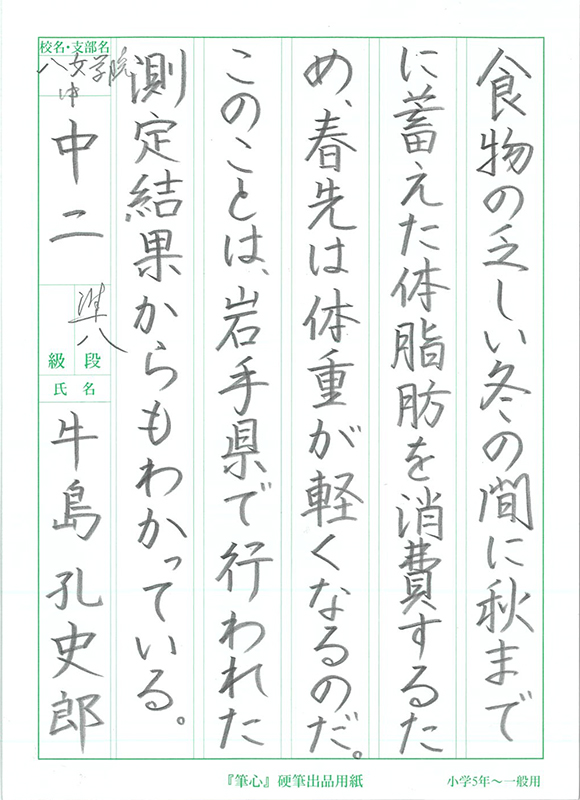 食物の乏しい冬の間に秋まで
に蓄えた体脂肪を消費するた
め、春先は体重が軽くなるのだ。
このことは、岩手県で行われた
測定結果からもわかっている。
校名・支部名
八女学院
中
中二
準八
級段
氏名
牛島孔史郎
『筆心』硬筆出品用紙
小学5年〜一般用